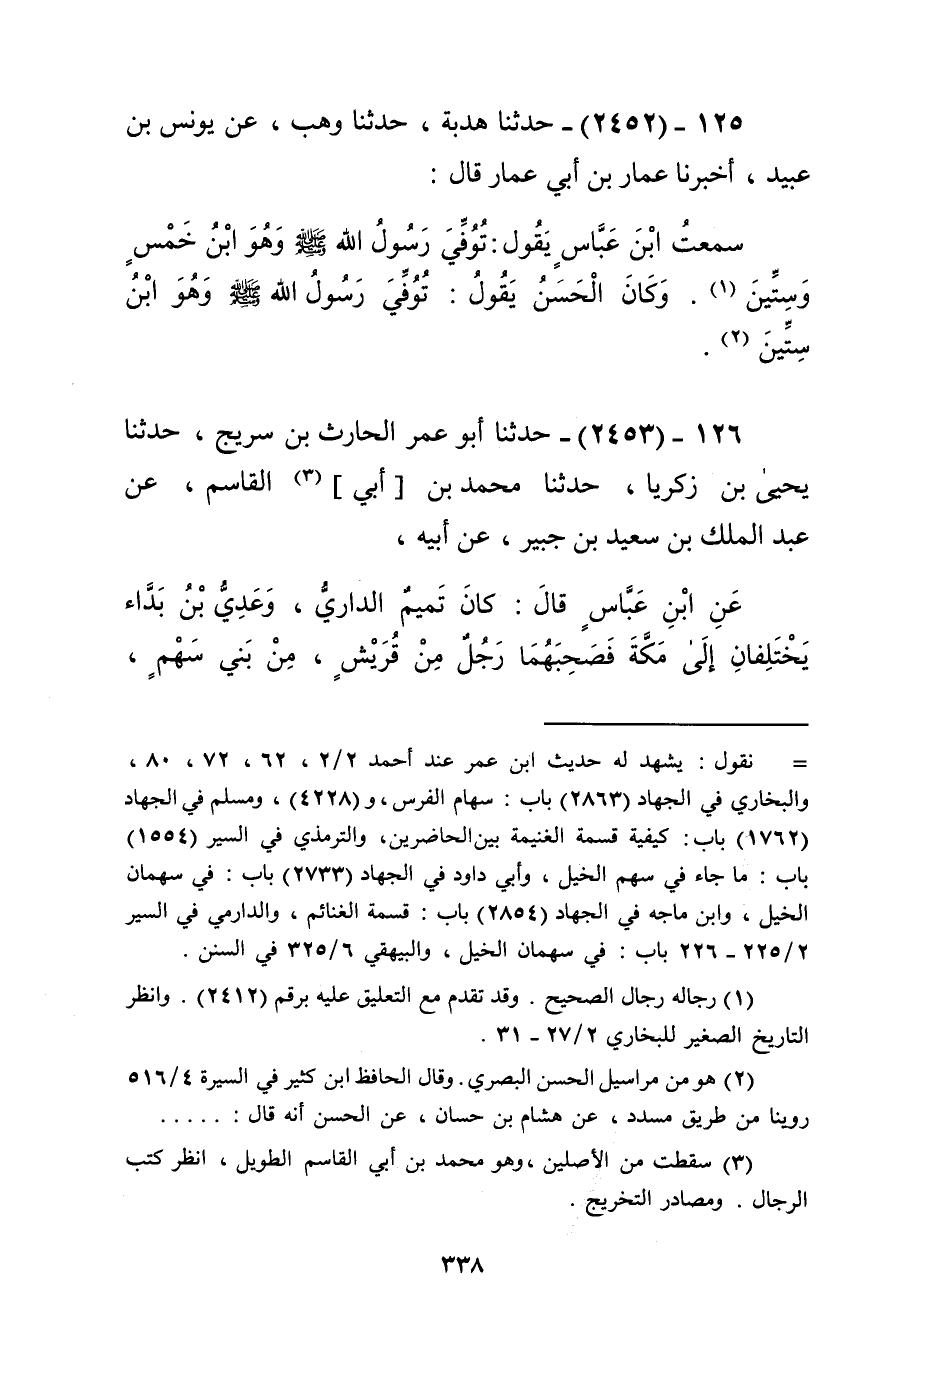 ١٢٥ ـ (٢٤٥٢) ـ حدثنا هدبة ، حدثنا وهب ، عن يونس بن
عبيد ، أخبرنا عمار بن أبي عمار قال :
سمعتُ ابْنَ عَبَّاسٍ يَقُول: تُوُفِّيَ رَسُولُ الله ﷺ وَهُوَ ابْنُ خَمْسٍ
وَسِتِّينَ (١) . وَكَانَ الْحَسَنُ يَقُولُ : تُوُفِّيَ رَسُولُ الله ﷺ وَهُوَ ابْنُ
سِتِّينَ (٢) .
١٢٦ ـ (٢٤٥٣) ـ حدثنا أبو عمر الحارث بن سريج ، حدثنا
يحيىٰ بن زكريا ، حدثنا محمد بن [ أبي ] (٣) القاسم ، عن
عبد الملك بن سعيد بن جبير ، عن أبيه ،
عَنِ ابْنِ عَبَّاسٍ قالَ : كانَ تَميمٌ الداريُّ ، وَعَدِيُّ بْنُ بَدَّاء
يَخْتَلِفانِ إِلَىٰ مَكَّةَ فَصَحِبَهُمَا رَجُلٌ مِنْ قُرَيْشٍ ، مِنْ بَني سَهْمٍ ،
= نقول : يشهد له حديث ابن عمر عند أحمد ٢/٢ ، ٦٢ ، ٧٢ ، ٨٠ ،
والبخاري في الجهاد (٢٨٦٣) باب : سهام الفرس، و (٤٢٢٨) ، ومسلم في الجهاد
(١٧٦٢) باب : كيفية قسمة الغنيمة بين الحاضرين، والترمذي في السير (١٥٥٤)
باب : ما جاء في سهم الخيل ، وأبي داود في الجهاد (٢٧٣٣) باب : في سهمان
الخيل ، وابن ماجه في الجهاد (٢٨٥٤) باب : قسمة الغنائم ، والدارمي في السير
٢/ ٢٢٥ ـ ٢٢٦ باب : في سهمان الخيل ، والبيهقي ٦/ ٣٢٥ في السنن .
(١) رجاله رجال الصحيح . وقد تقدم مع التعليق عليه برقم (٢٤١٢) . وانظر
التاريخ الصغير للبخاري ٢/ ٢٧ ـ ٣١ .
(٢) هو من مراسيل الحسن البصري . وقال الحافظ ابن كثير في السيرة ٤/ ٥١٦
روينا من طريق مسدد ، عن هشام بن حسان ، عن الحسن أنه قال : .....
(٣) سقطت من الأصلين ، وهو محمد بن أبي القاسم الطويل ، انظر كتب
الرجال . ومصادر التخريج .
٣٣٨